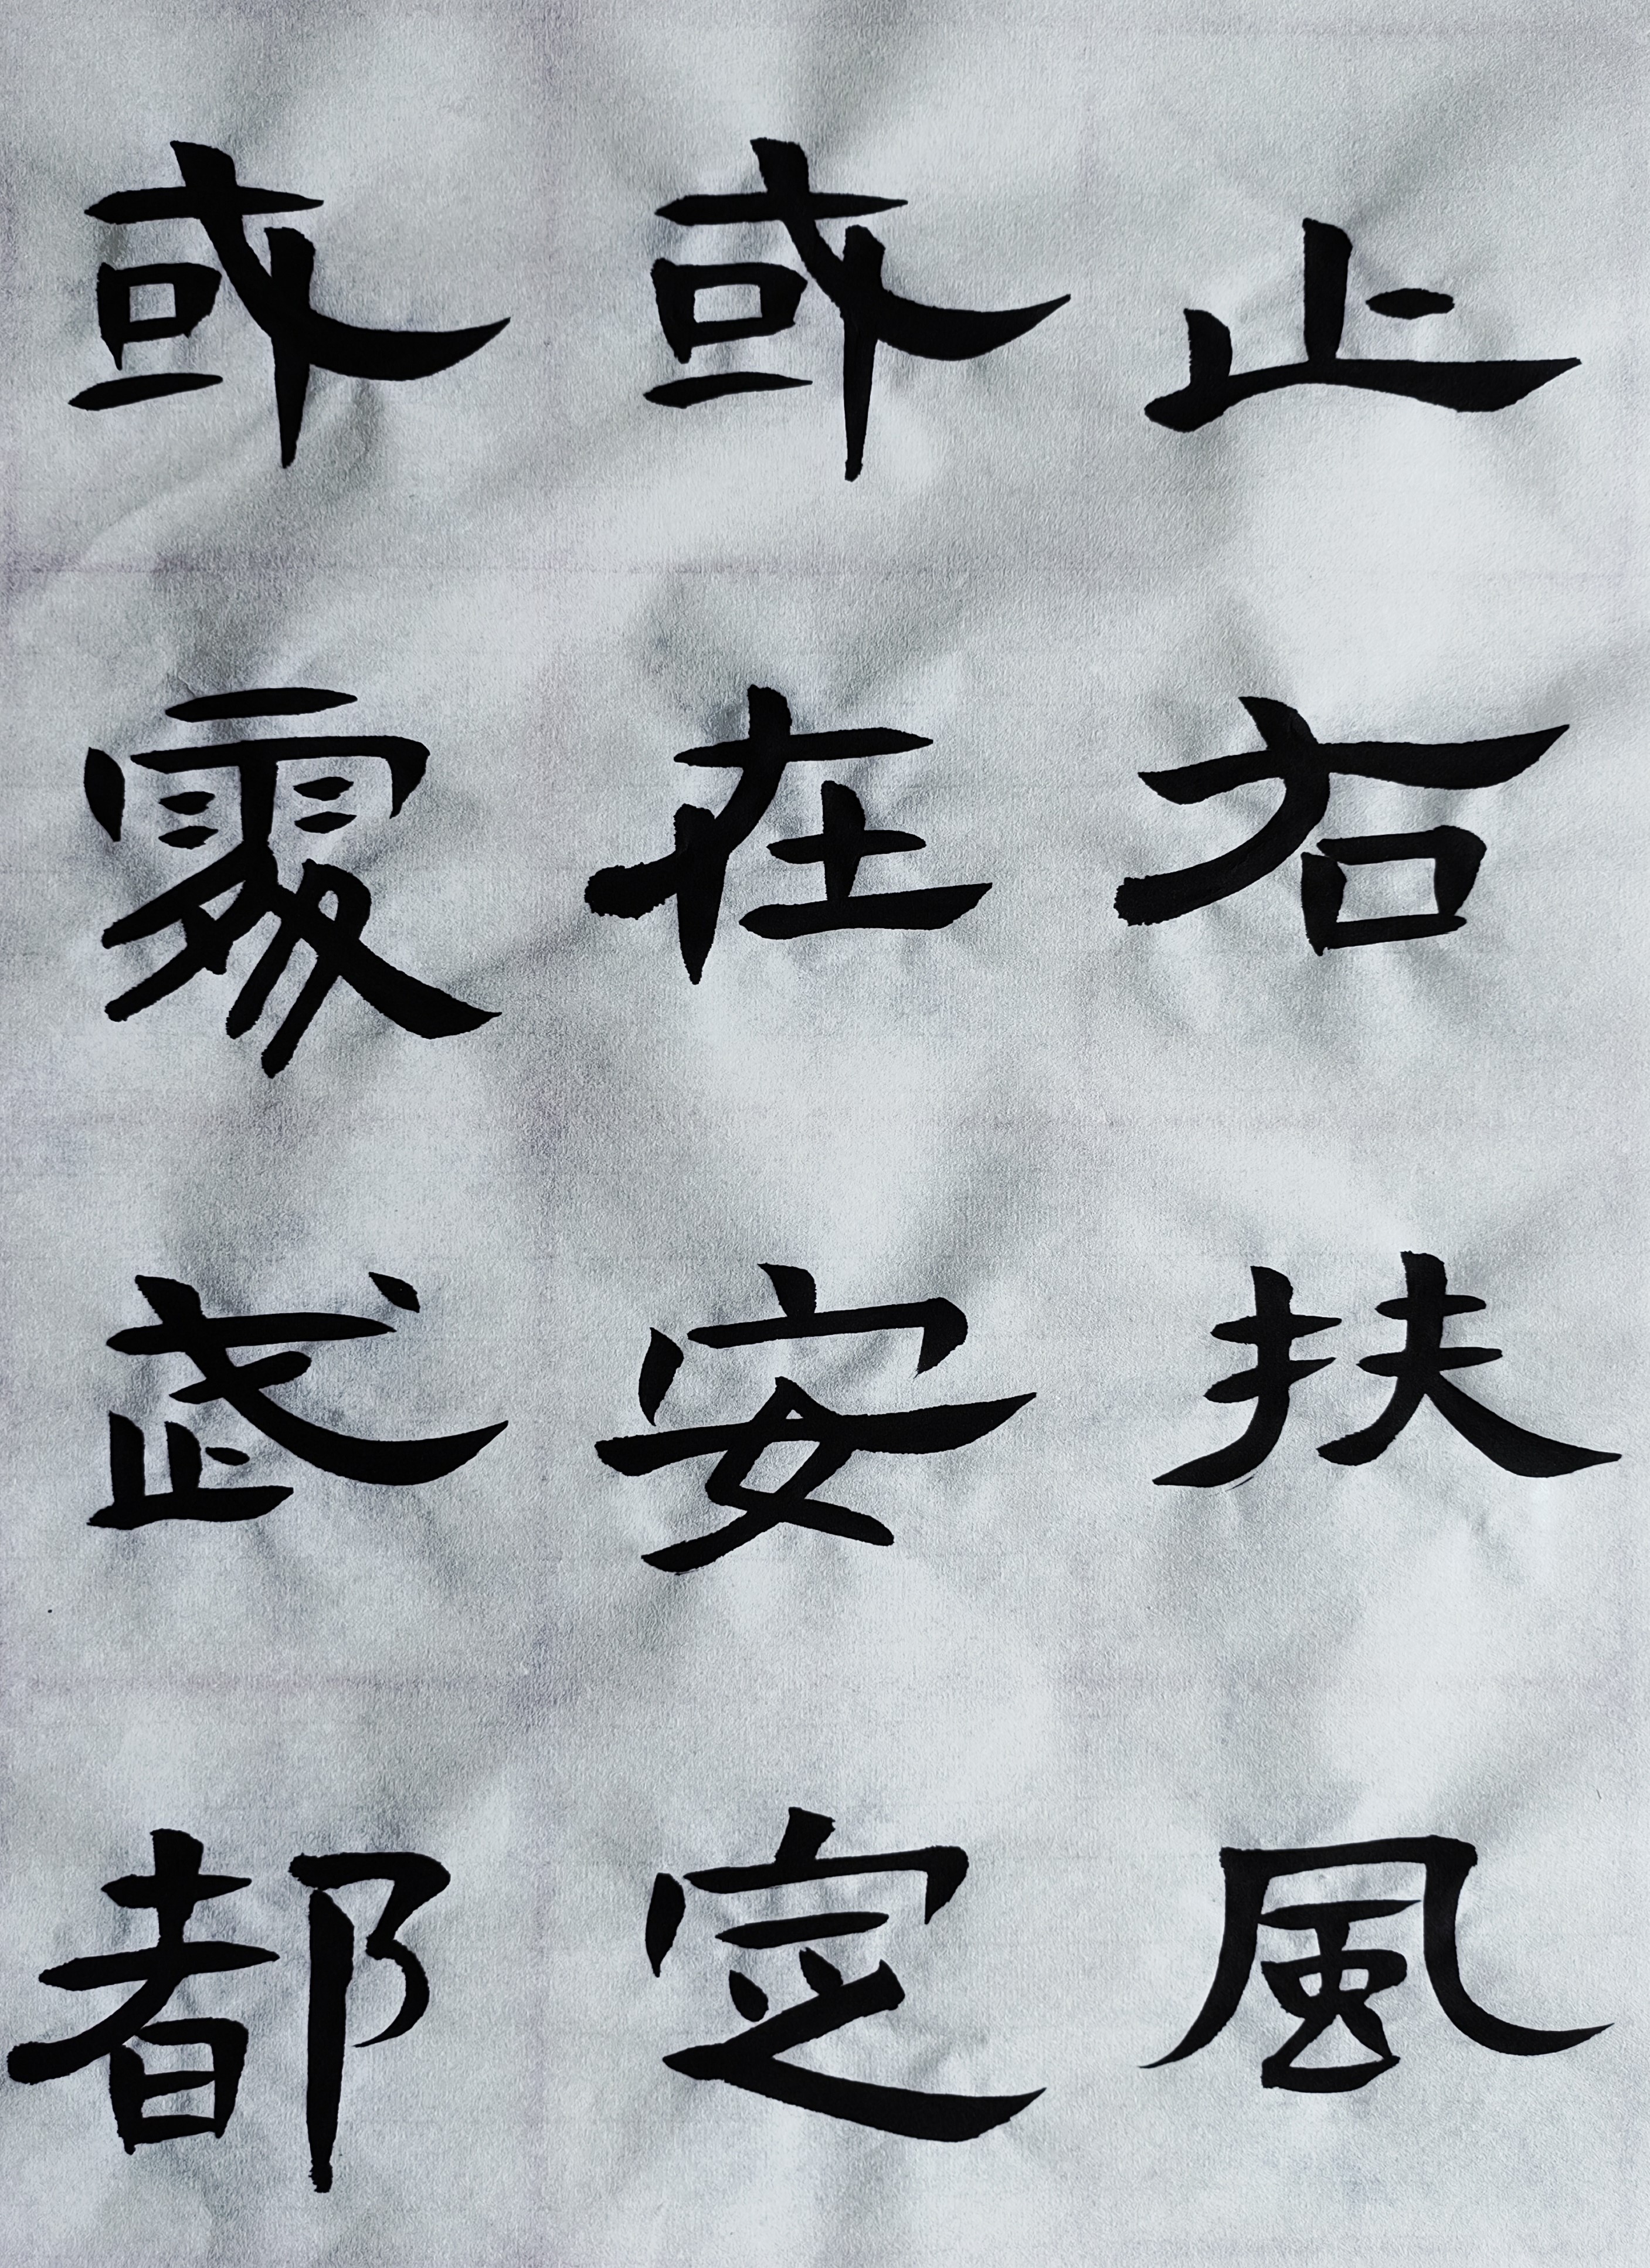 止右扶風
或在安定
或處武都